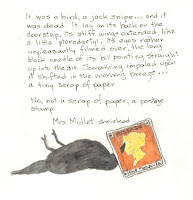 It was a bird, a jack snipe... and it
was dead. It lay on its back on the
doorstep, its stiff wings extended like
a little pterodactyl, its eyes rather
unpleasantly filmed over, the long
black needle of its bill pointing straight
up into the air. Something impaled upon
it shifted in the morning breeze...
a tiny scrap of paper
No, not a scrap of paper, a postage
stamp.
Mrs. Mullet shrieked